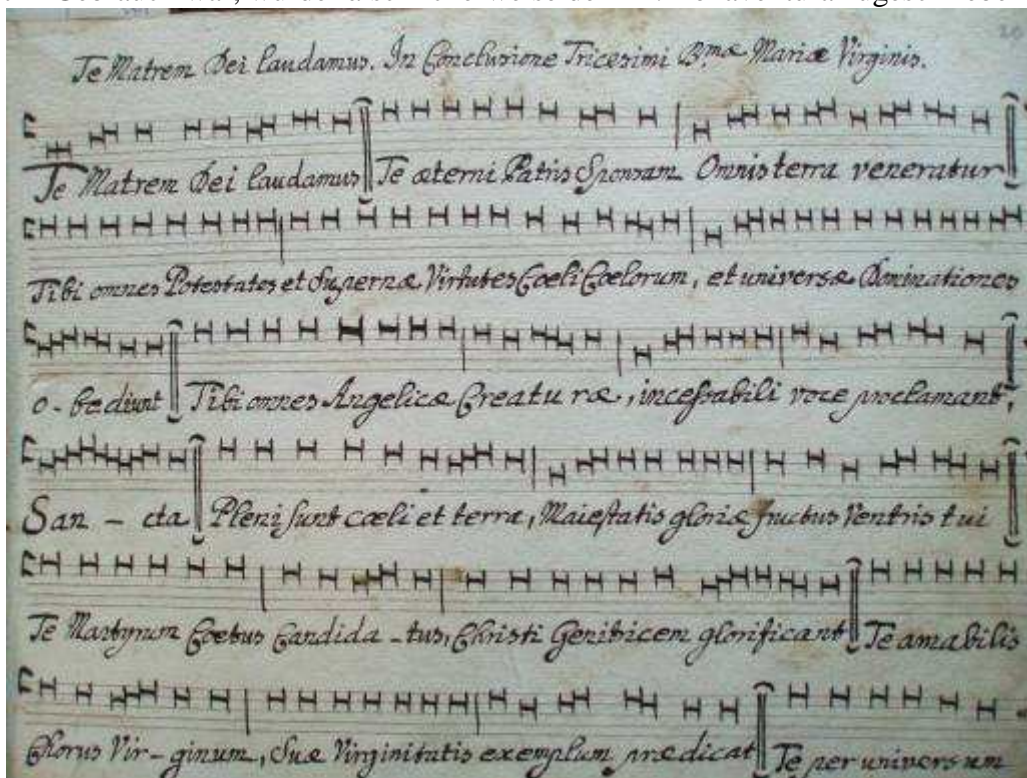 Te Matrem Dei laudamus. In Conclusione Tricesimi B.mæ Mariæ Virginis.
Te Matrem Dei laudamus Te æterni Patris Sponsam Omnis terra veneratur
Tibi omnes Potestates et Supernæ Virtutes Coeli Coelorum, et universæ Dominationes
o-bediunt Tibi omnes Angelicæ Creaturæ, incessabili voce proclamant,
San - cta Pleni sunt cæli et terra, Maiestatis gloriæ fructus Ventris tui
Te Martyrum Coetus Candida-tus, Christi Genitricem glorificant Te amabilis
Chorus Vir-ginum, Suæ Virginitatis exemplum prædicat Te per universum